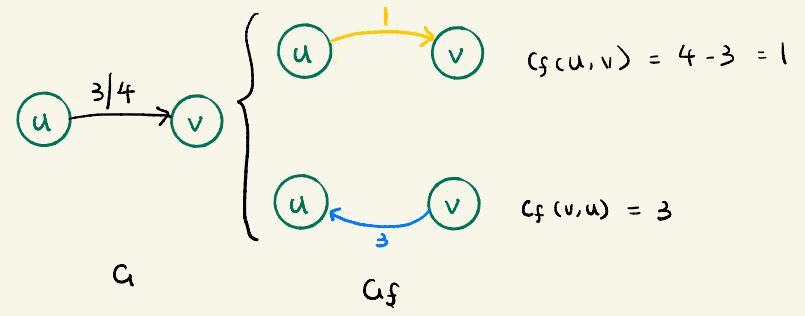 u 3/4 v
G
u 1 v
Cf(u,v) = 4-3 = 1
u 3 v
Cf(v,u) = 3
Gf